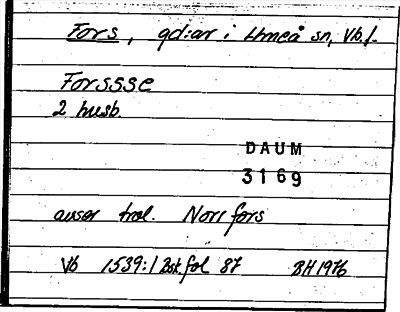 Fors, gd:ar i Umeå sn, Vb.l.
Forssse
2 husb.
DAUM
3169
avser trol. Norrfors
Vb 1539:1 Bsk fol 87 BH 1976